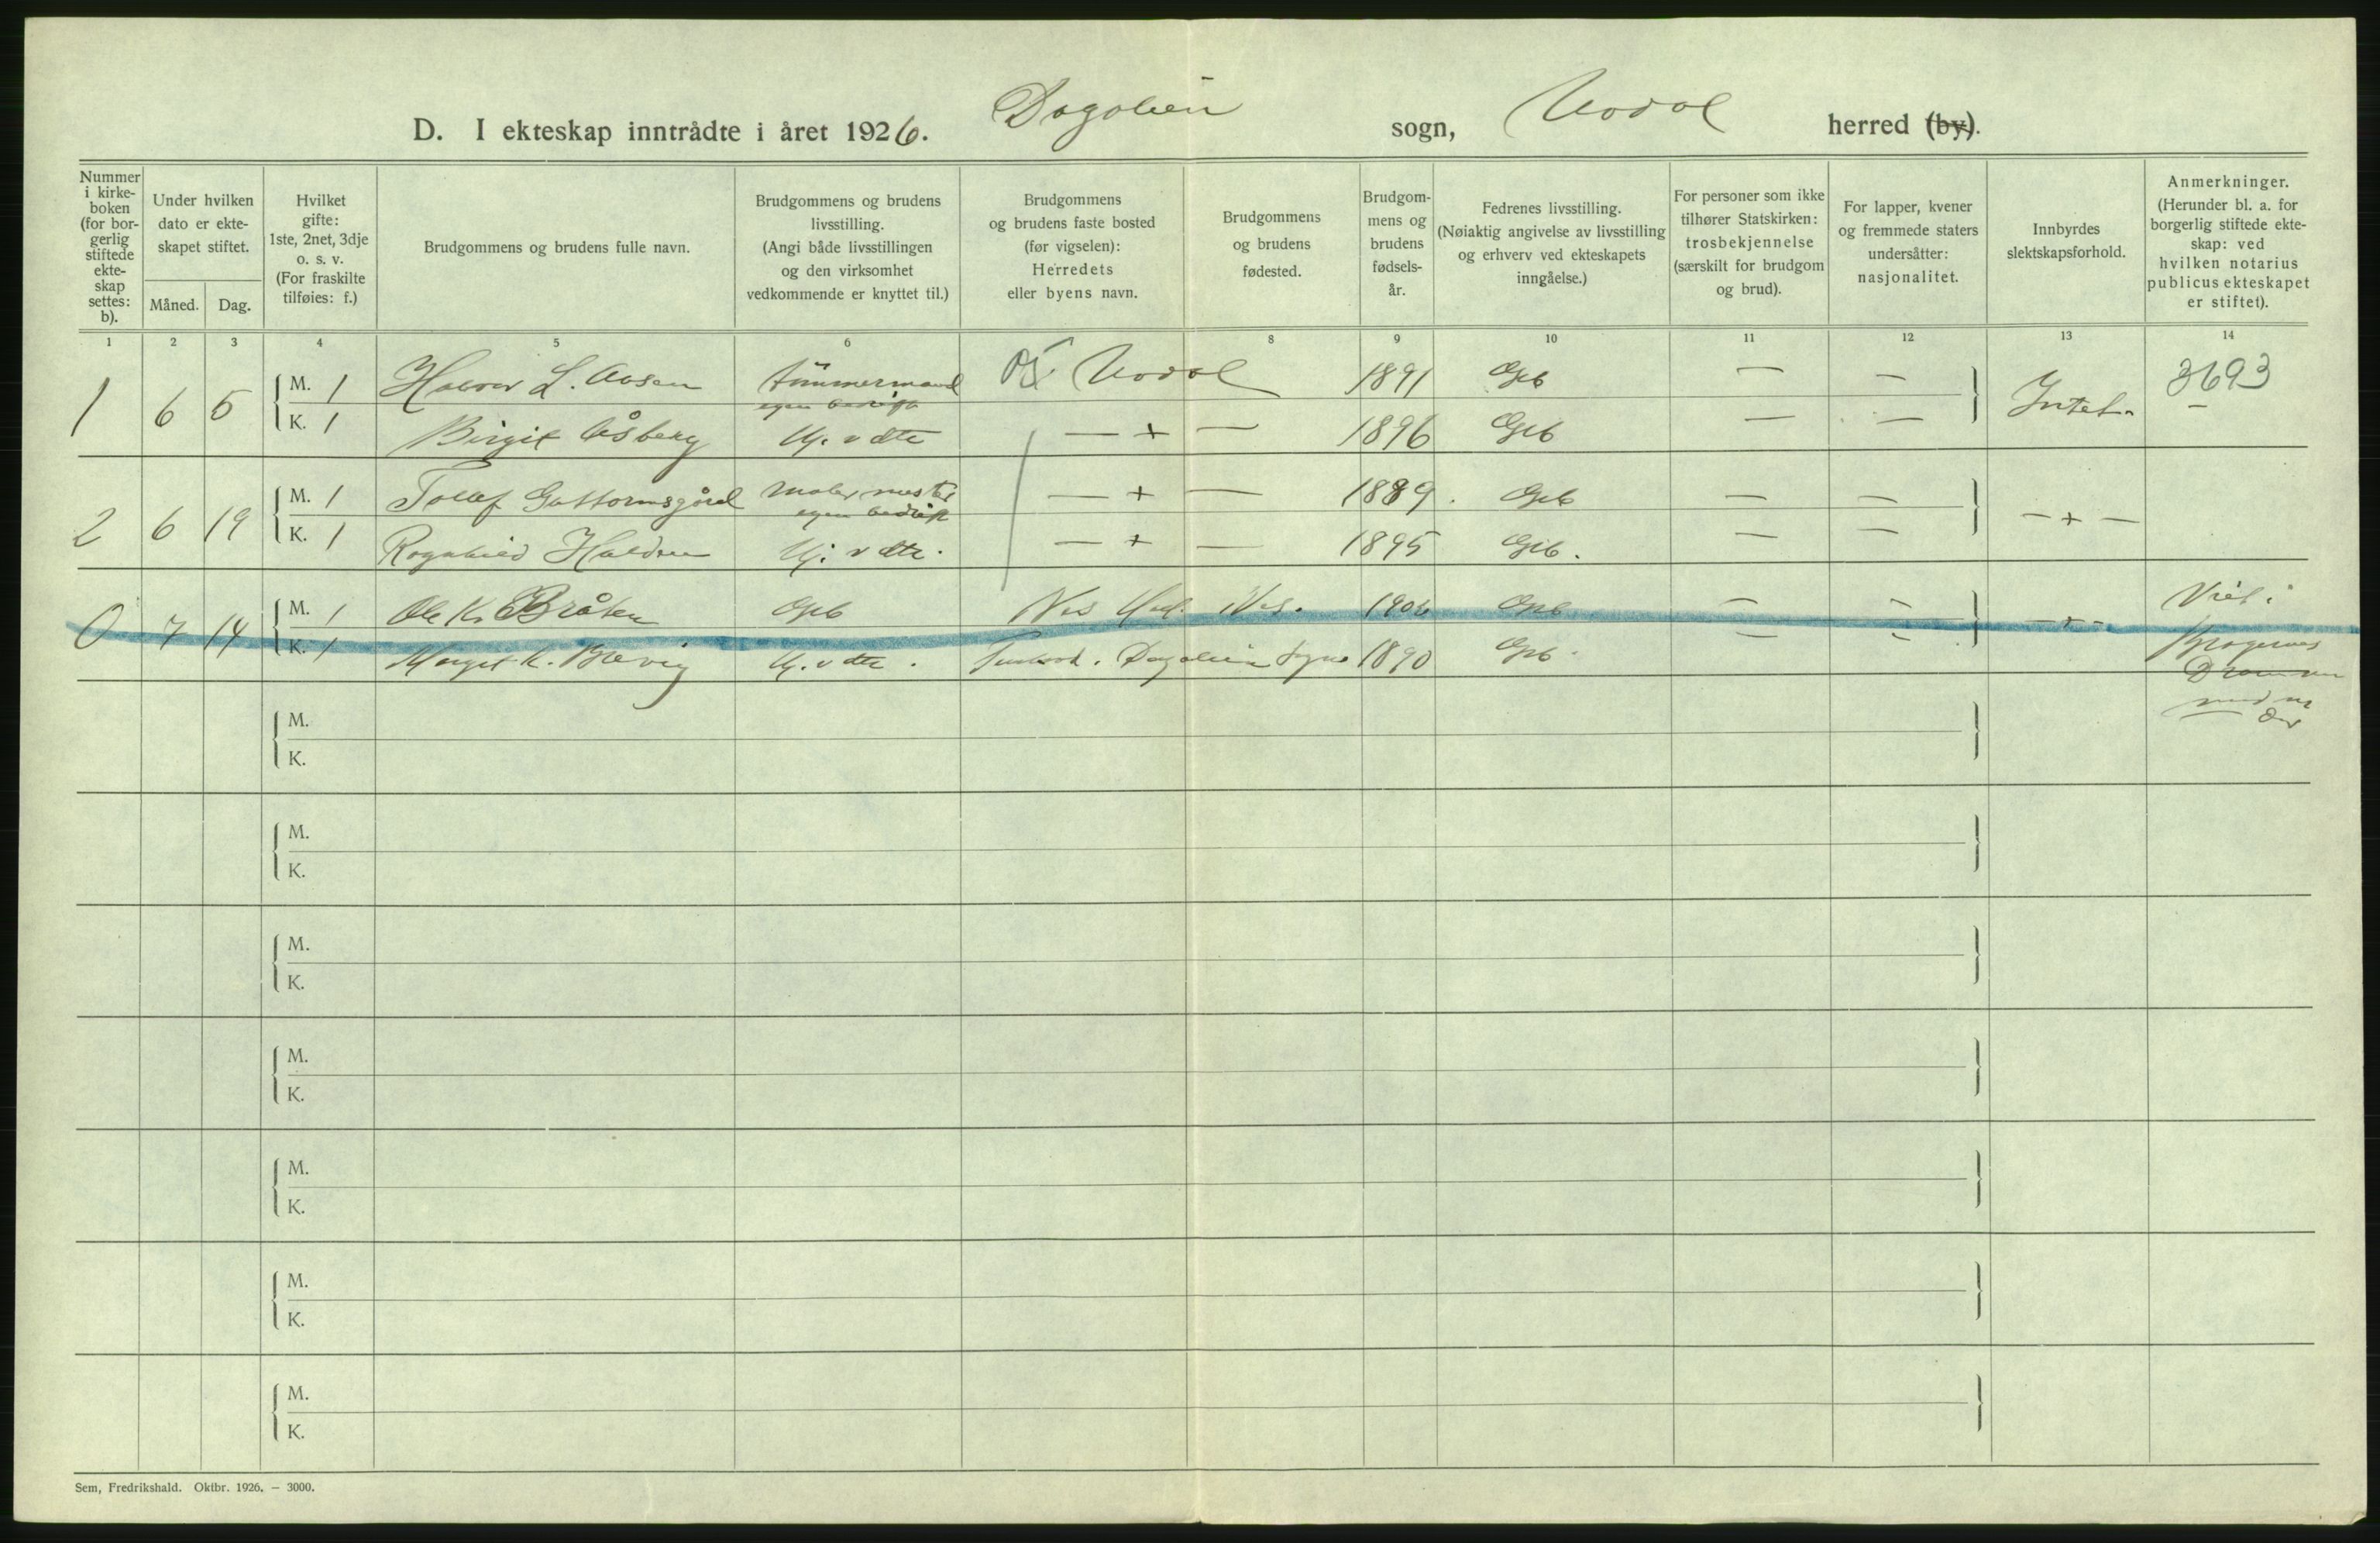 D. I ekteskap inntrådte i året 1926. Dagalien sogn, Uvdal herred (by).
Nummer i kirkeboken (for borgerlig stiftede ekteskap settes: b).
Under hvilken dato er ekteskapet stiftet.
Måned. Dag.
Hvilket gifte: 1ste, 2net, 3dje o. s. v. (For fraskilte tilføies: f.)
Brudgommens og brudens fulle navn.
Brudgommens og brudens livsstilling. (Angi både livsstillingen og den virksomhet vedkommende er knyttet til.)
Brudgommens og brudens faste bosted (før vigselen): Herredets eller byens navn.
Brudgommens og brudens fødested.
Brudgommens og brudens fødselsår.
Fedrenes livsstilling. (Nøiaktig angivelse av livsstilling og erhverv ved ekteskapets inngåelse.)
For personer som ikke tilhører Statskirken: trosbekjennelse (særskilt for brudgom og brud).
For lapper, kvener og fremmede staters undersåtter: nasjonalitet.
Innbyrdes slektskapsforhold.
Anmerkninger. (Herunder bl. a. for borgerlig stiftede ekteskap: ved hvilken notarius publicus ekteskapet er stiftet).
1 2 3 4 5 6 8 9 10 11 12 13 14
1 6 5 M. 1 Halvor L. Aasen tømmermand egen bedrift Uvdal 1891 Gb — — Intet. 3693
K. 1 Birgit Åsberg Hj. v dtr — + — 1896 Gb — —
2 6 19 M. 1 Tollef Guttormsgård maler mester egen bedrift — + — 1889. Gb — — — + —
K. 1 Ragnhild Halden Hj. v dtr. — + — 1895 Gb. — —
0 7 14 M. 1 Ole K. Bråten Gb Nes Hal. Nes. Gb — — — + — Viet i
K. 1 Margit K. Brevig Hj. v dtr. Dagalien sogn 1890 Gb. — — Bragernes
Drammen
M.
K.
M.
K.
M.
K.
M.
K.
M.
K.
M.
K.
M.
K.
Sem, Fredrikshald. Oktbr. 1926. — 3000.